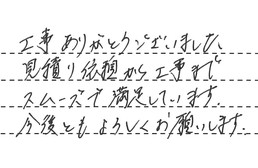 工事ありがとうございました
見積り依頼から工事まで
スムーズで満足しています.
今後ともよろしくお願いします.